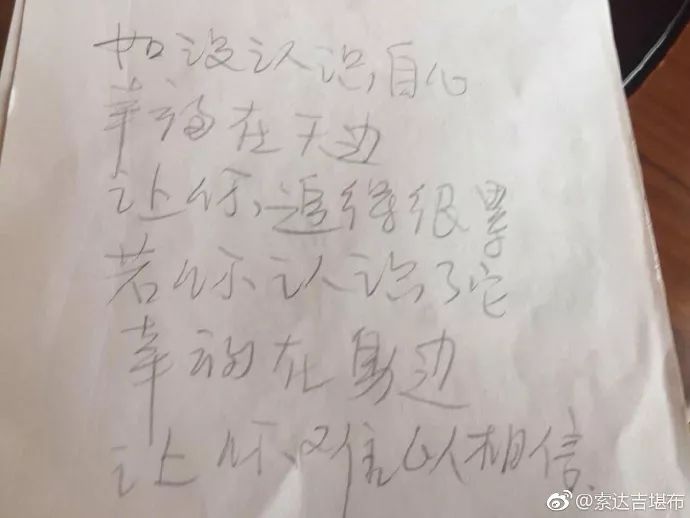 如没认识自心
幸福在天边
让你追得很累
若你认识了它
幸福在身边
让你难以相信
@索达吉堪布